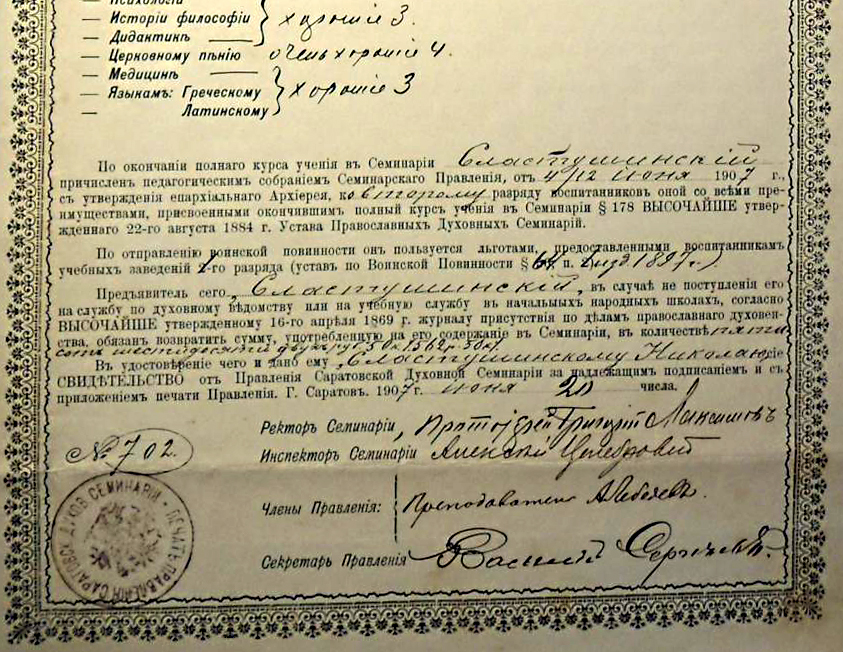 — Психологіи
— Исторіи философіи } хорошіе 3.
— Дидактикѣ
— Церковному пѣнію очень хорошіе 4.
— Медицинѣ
— Языкамъ: Греческому } хорошіе 3
— Латинскому
По окончаніи полнаго курса ученія въ Семинаріи Сластушинскій
причисленъ педагогическимъ собраніемъ Семинарскаго Правленія, отъ 4/12 июня 1907 г.,
съ утвержденія епархіальнаго Архіерея, ко второму разряду воспитанниковъ оной со всѣми пре-
имуществами, присвоенными окончившимъ полный курсъ ученія въ Семинаріи § 178 ВЫСОЧАЙШЕ утвер-
жденнаго 22-го августа 1884 г. Устава Православныхъ Духовныхъ Семинарій.
По отправленію воинской повинности онъ пользуется льготами, предоставленными воспитанникамъ
учебныхъ заведеній 2-го разряда (уставъ по Воинской Повинности § 64. п. 2 изд 1897 г.).
Предъявитель сего, Сластушинскій, въ случаѣ не поступленія его
на службу по духовному вѣдомству или на учебную службу въ начальныхъ народныхъ школахъ, согласно
ВЫСОЧАЙШЕ утвержденному 16-го апрѣля 1869 г. журналу присутствія по дѣламъ православнаго духовен-
ства, обязанъ возвратить сумму, употребленную на его содержаніе въ Семинаріи, въ количествѣ пяти
сотъ шестьдесятъ двухъ руб.
Въ удостовѣреніе чего и дано ему, Сластушинскому Николаю, сіе
СВИДѢТЕЛЬСТВО отъ Правленія Саратовской Духовной Семинаріи за надлежащимъ подписаніемъ и съ
приложеніемъ печати Правленія. Г. Саратовъ. 1907 г. июня 20 числа.
Ректоръ Семинаріи, Протоіерей Григорій Максимовъ
№ 702.
Инспекторъ Семинаріи Алексѣй Целебровскій
Члены Правленія: Преподаватель А Лебедевъ.
Секретарь Правленія Василій
ПЕЧАТЬ ПРАВЛЕНІЯ САРАТОВСК. ДУХОВ. СЕМИНАРІИ